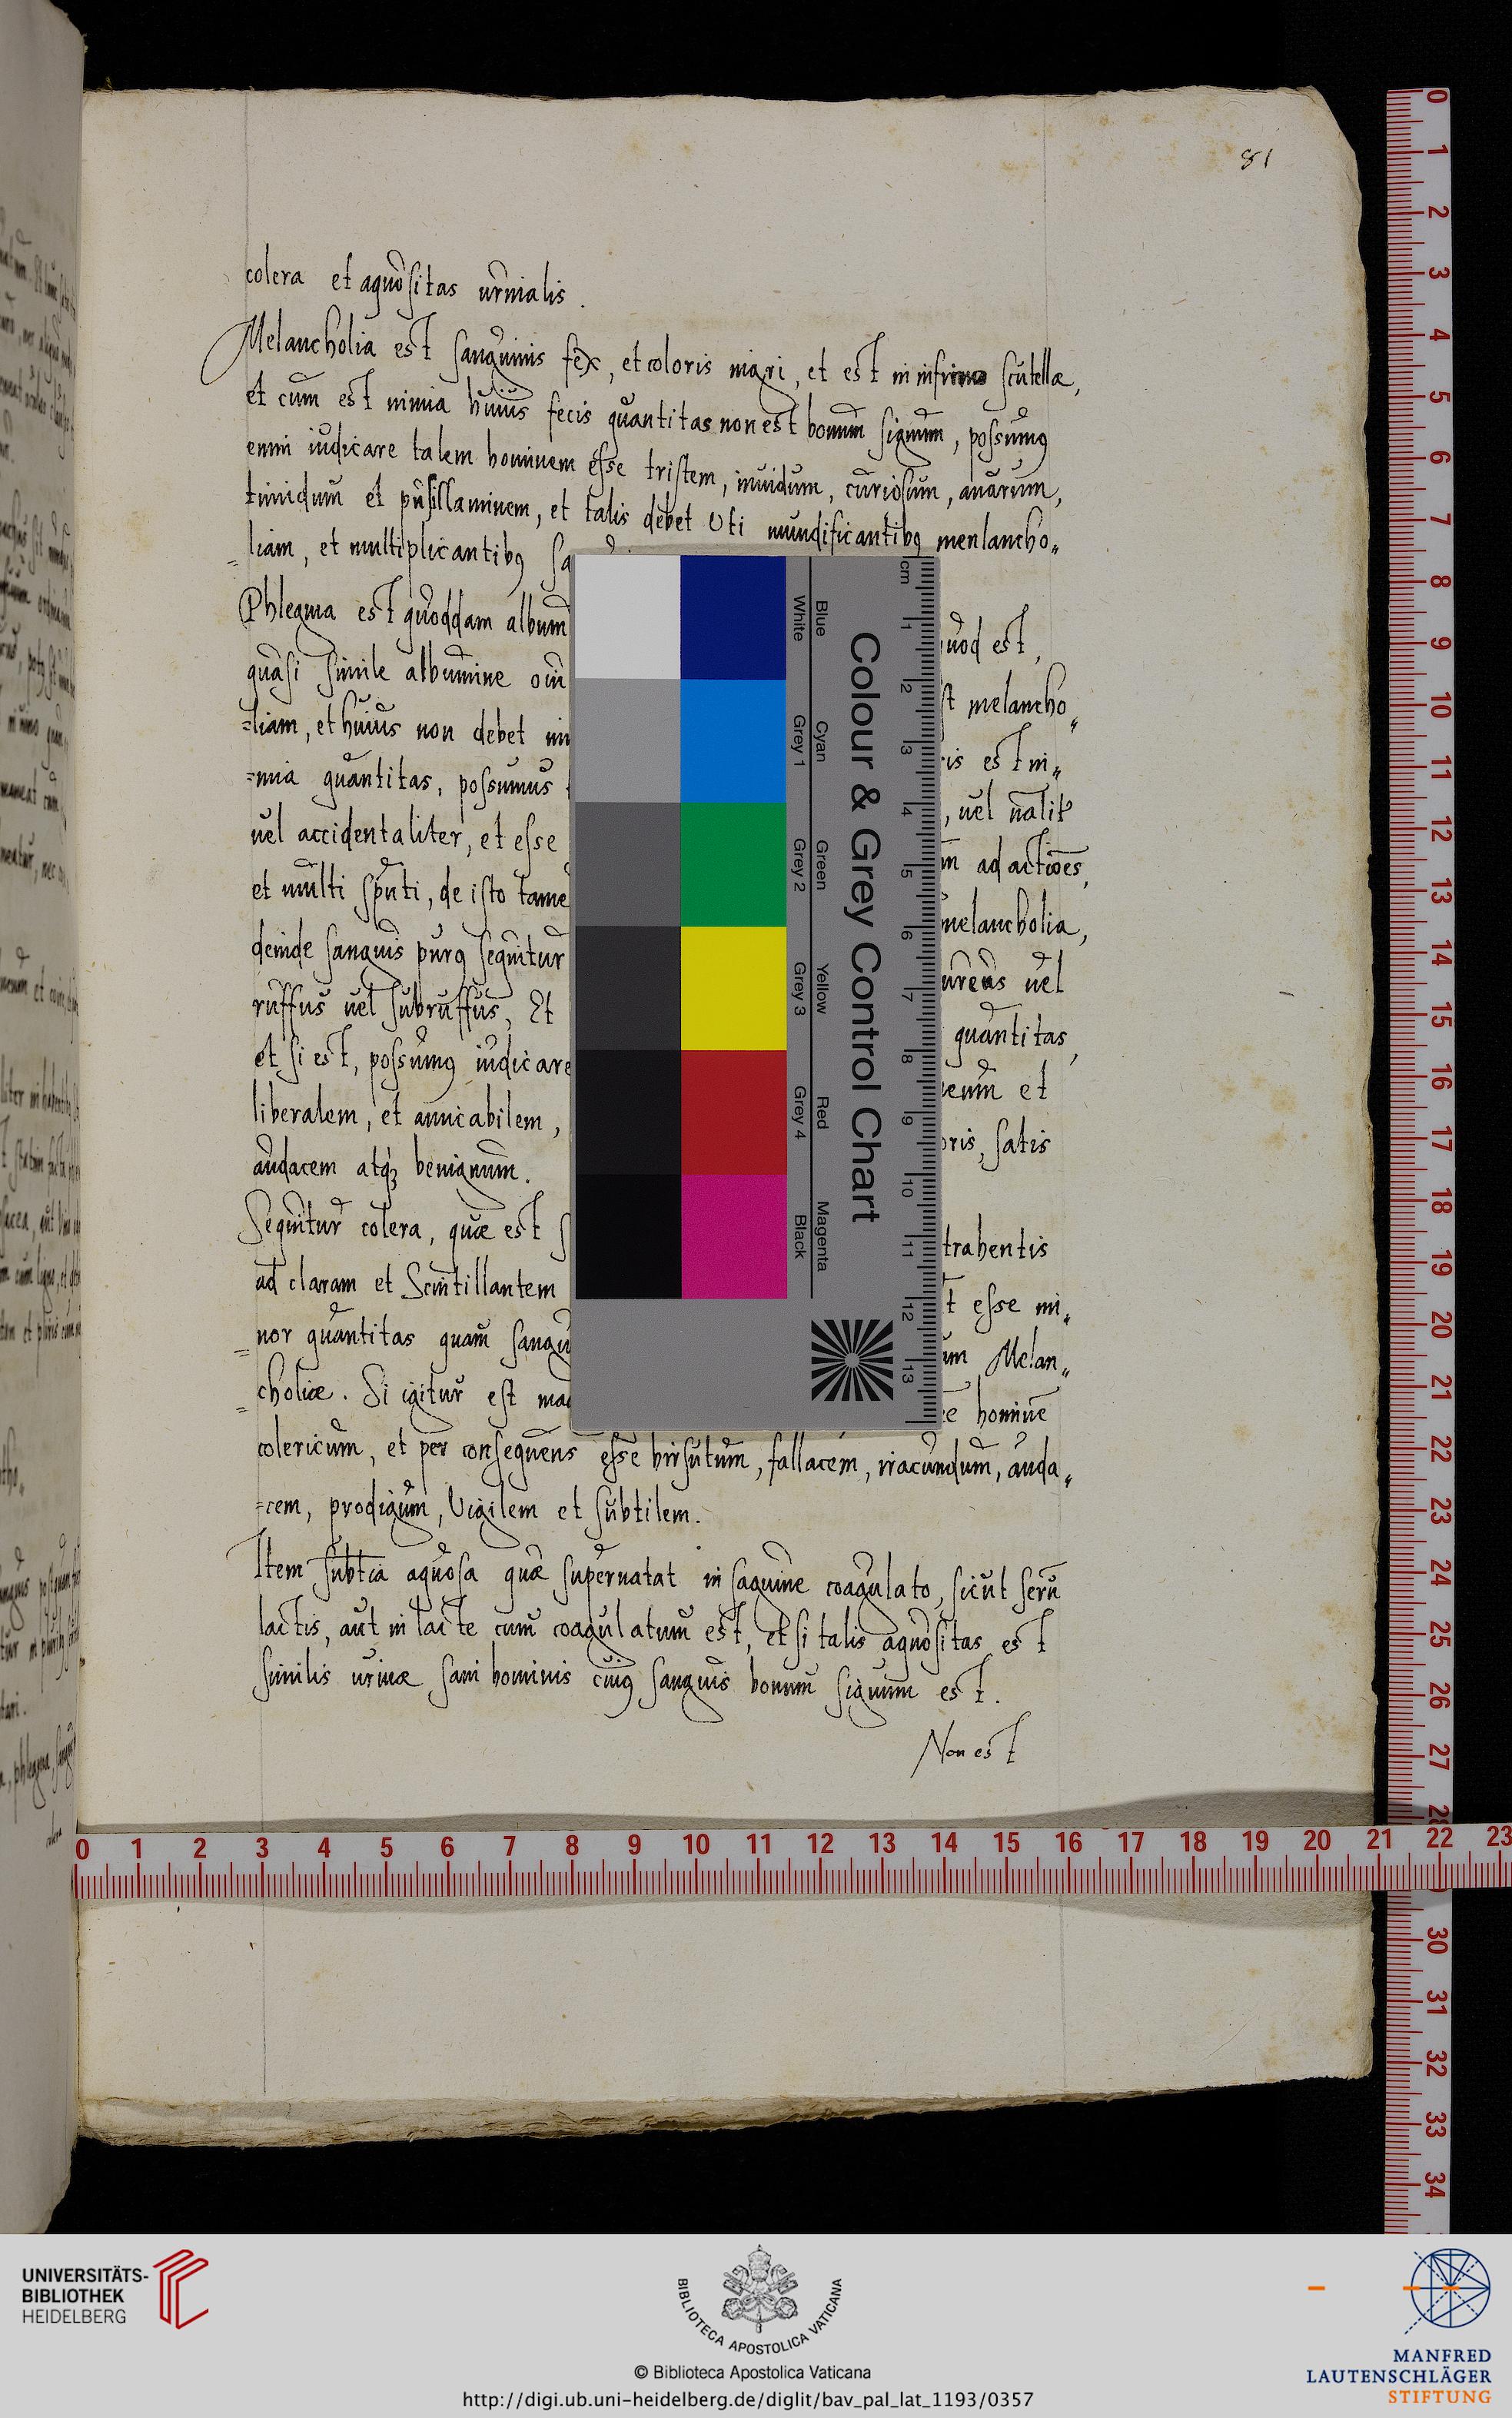 81
colera et aquositas urinialis.
Melancholia est sanguinis fex, et coloris nigri, et est in infimo scutellæ,
et cum est nimia huius fecis quantitas non est bonum signum, possumꝰ
enim iudicare talem hominem esse tristem, inuidum, curiosum, auarum,
timidum et pusillaminem, et talis debet Uti mundificantibꝰ menlancho„
=liam, et multiplicantibꝰ
Phlegma est quoddam album quod est,
quasi simile albumine melancho„
=liam, et huius non debet est ni„
=mia quantitas, possumus uel nālitʳ
uel accidentaliter, et esse ad actiōes,
et multi sputi, de isto melancholia,
deinde sanguis purꝰ sequitur uel
ruffus uel subruffus, Et quantitas,
et si est, possumꝰ iudicare et
liberalem, et amicabilem, satis
audacem atqꝫ benignum.
Sequitur colera, quæ est trahentis
ad claram et Scintillantem esse mi„
=nor quantitas quam Melan„
=choliæ. Si igitur est hominē
colericum, et per consequens esse hirsutum, fallacem, iracundum, auda„
=cem, prodigum, Uigilem et subtilem.
Item subtīa aquosa quæ supernatat in saguine coagulato, sicut serū
lactis, aut in lacte cum coagulatum est, et si talis aquositas est
similis urinæ sani hominis cuiꝰ sanguis bonum signum est.
Non est
Colour & Grey Control Chart
Blue Cyan Green Yellow Red Magenta
White Grey 1 Grey 2 Grey 3 Grey 4 Black
cm 1 2 3 4 5 6 7 8 9 10 11 12 13
0 1 2 3 4 5 6 7 8 9 10 11 12 13 14 15 16 17 18 19 20 21 22 23 24 25 26 27 30 31 32 33 34
0 1 2 3 4 5 6 7 8 9 10 11 12 13 14 15 16 17 18 19 20 21 22 23
UNIVERSITÄTS-
BIBLIOTHEK
HEIDELBERG
BIBLIOTECA APOSTOLICA VATICANA
© Biblioteca Apostolica Vaticana
http://digi.ub.uni-heidelberg.de/diglit/bav_pal_lat_1193/0357
MANFRED
LAUTENSCHLÄGER
STIFTUNG